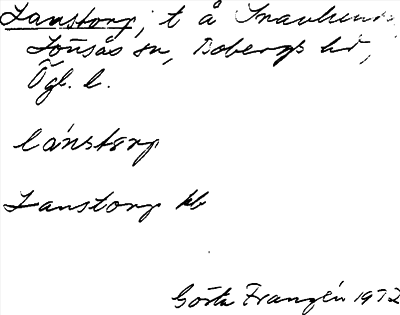 Lanstorp, t å Snavlunda
Lönsås sn, Bobergs hd,
Ögl. l.
lánstørp
Lanstorp kb
Gösta Franzén 1972